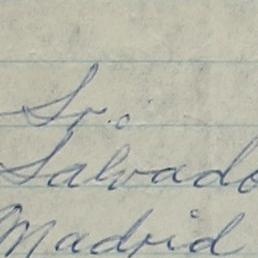 Sr.:
Salvado
Madrid